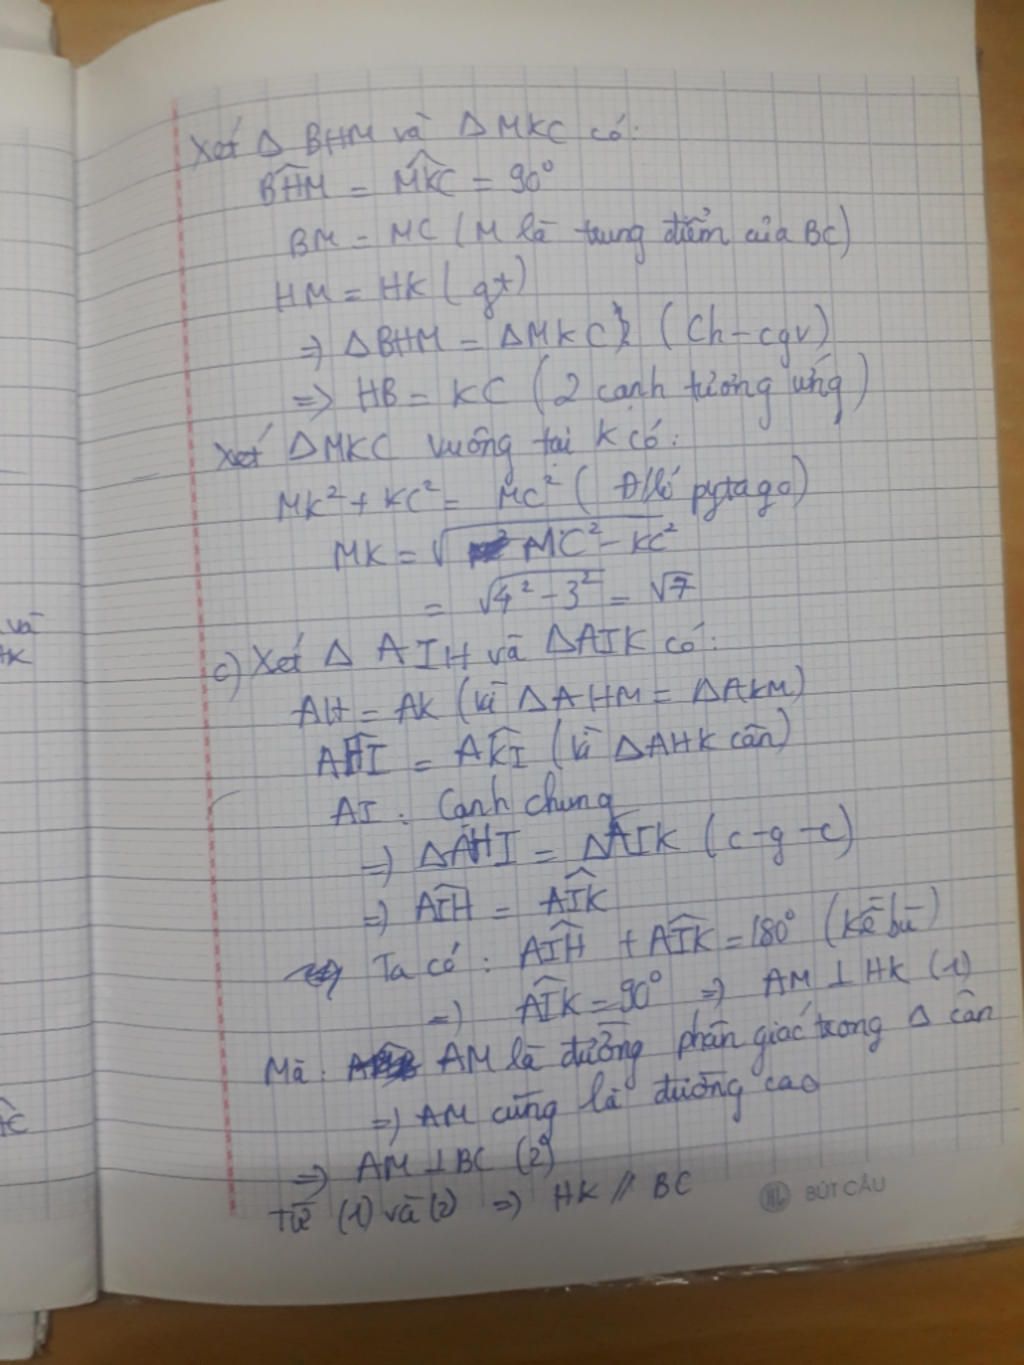 Xét Δ BHM và Δ MKC có:
BHM = MKC = 90°
BM = MC (M là trung điểm của BC)
HM = HK (gt)
=> ΔBHM = ΔMKC (Ch-cgv)
=> HB = KC (2 cạnh tương ứng)
Xét ΔMKC vuông tại K có:
MK² + KC² = MC² (Đ/lí pytago)
MK = √MC² - KC²
= √4² - 3² = √7
c) Xét Δ AIH và ΔAIK có:
AH = AK (vì ΔAHM = ΔAKM)
AHI = AKI (vì ΔAHK cân)
AI : Cạnh chung
=> ΔAHI = ΔAIK (c-g-c)
=> AIH = AIK
Ta có: AIH + AIK = 180° (kề bù)
=> AIK = 90° => AM ⊥ HK (1)
Mà: AM là đường phân giác trong Δ cân
=> AM cũng là đường cao
=> AM ⊥ BC (2)
Từ (1) và (2) => HK // BC
BÚT CÂU
và
HK